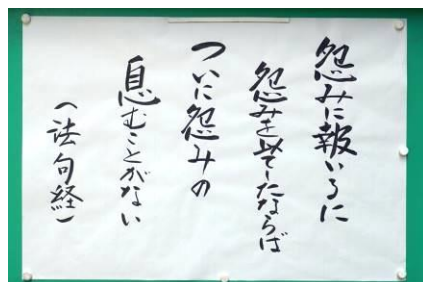 怨みに報いるに
怨みを以てしたならば
ついに怨みの
息むことがない
（法句経）